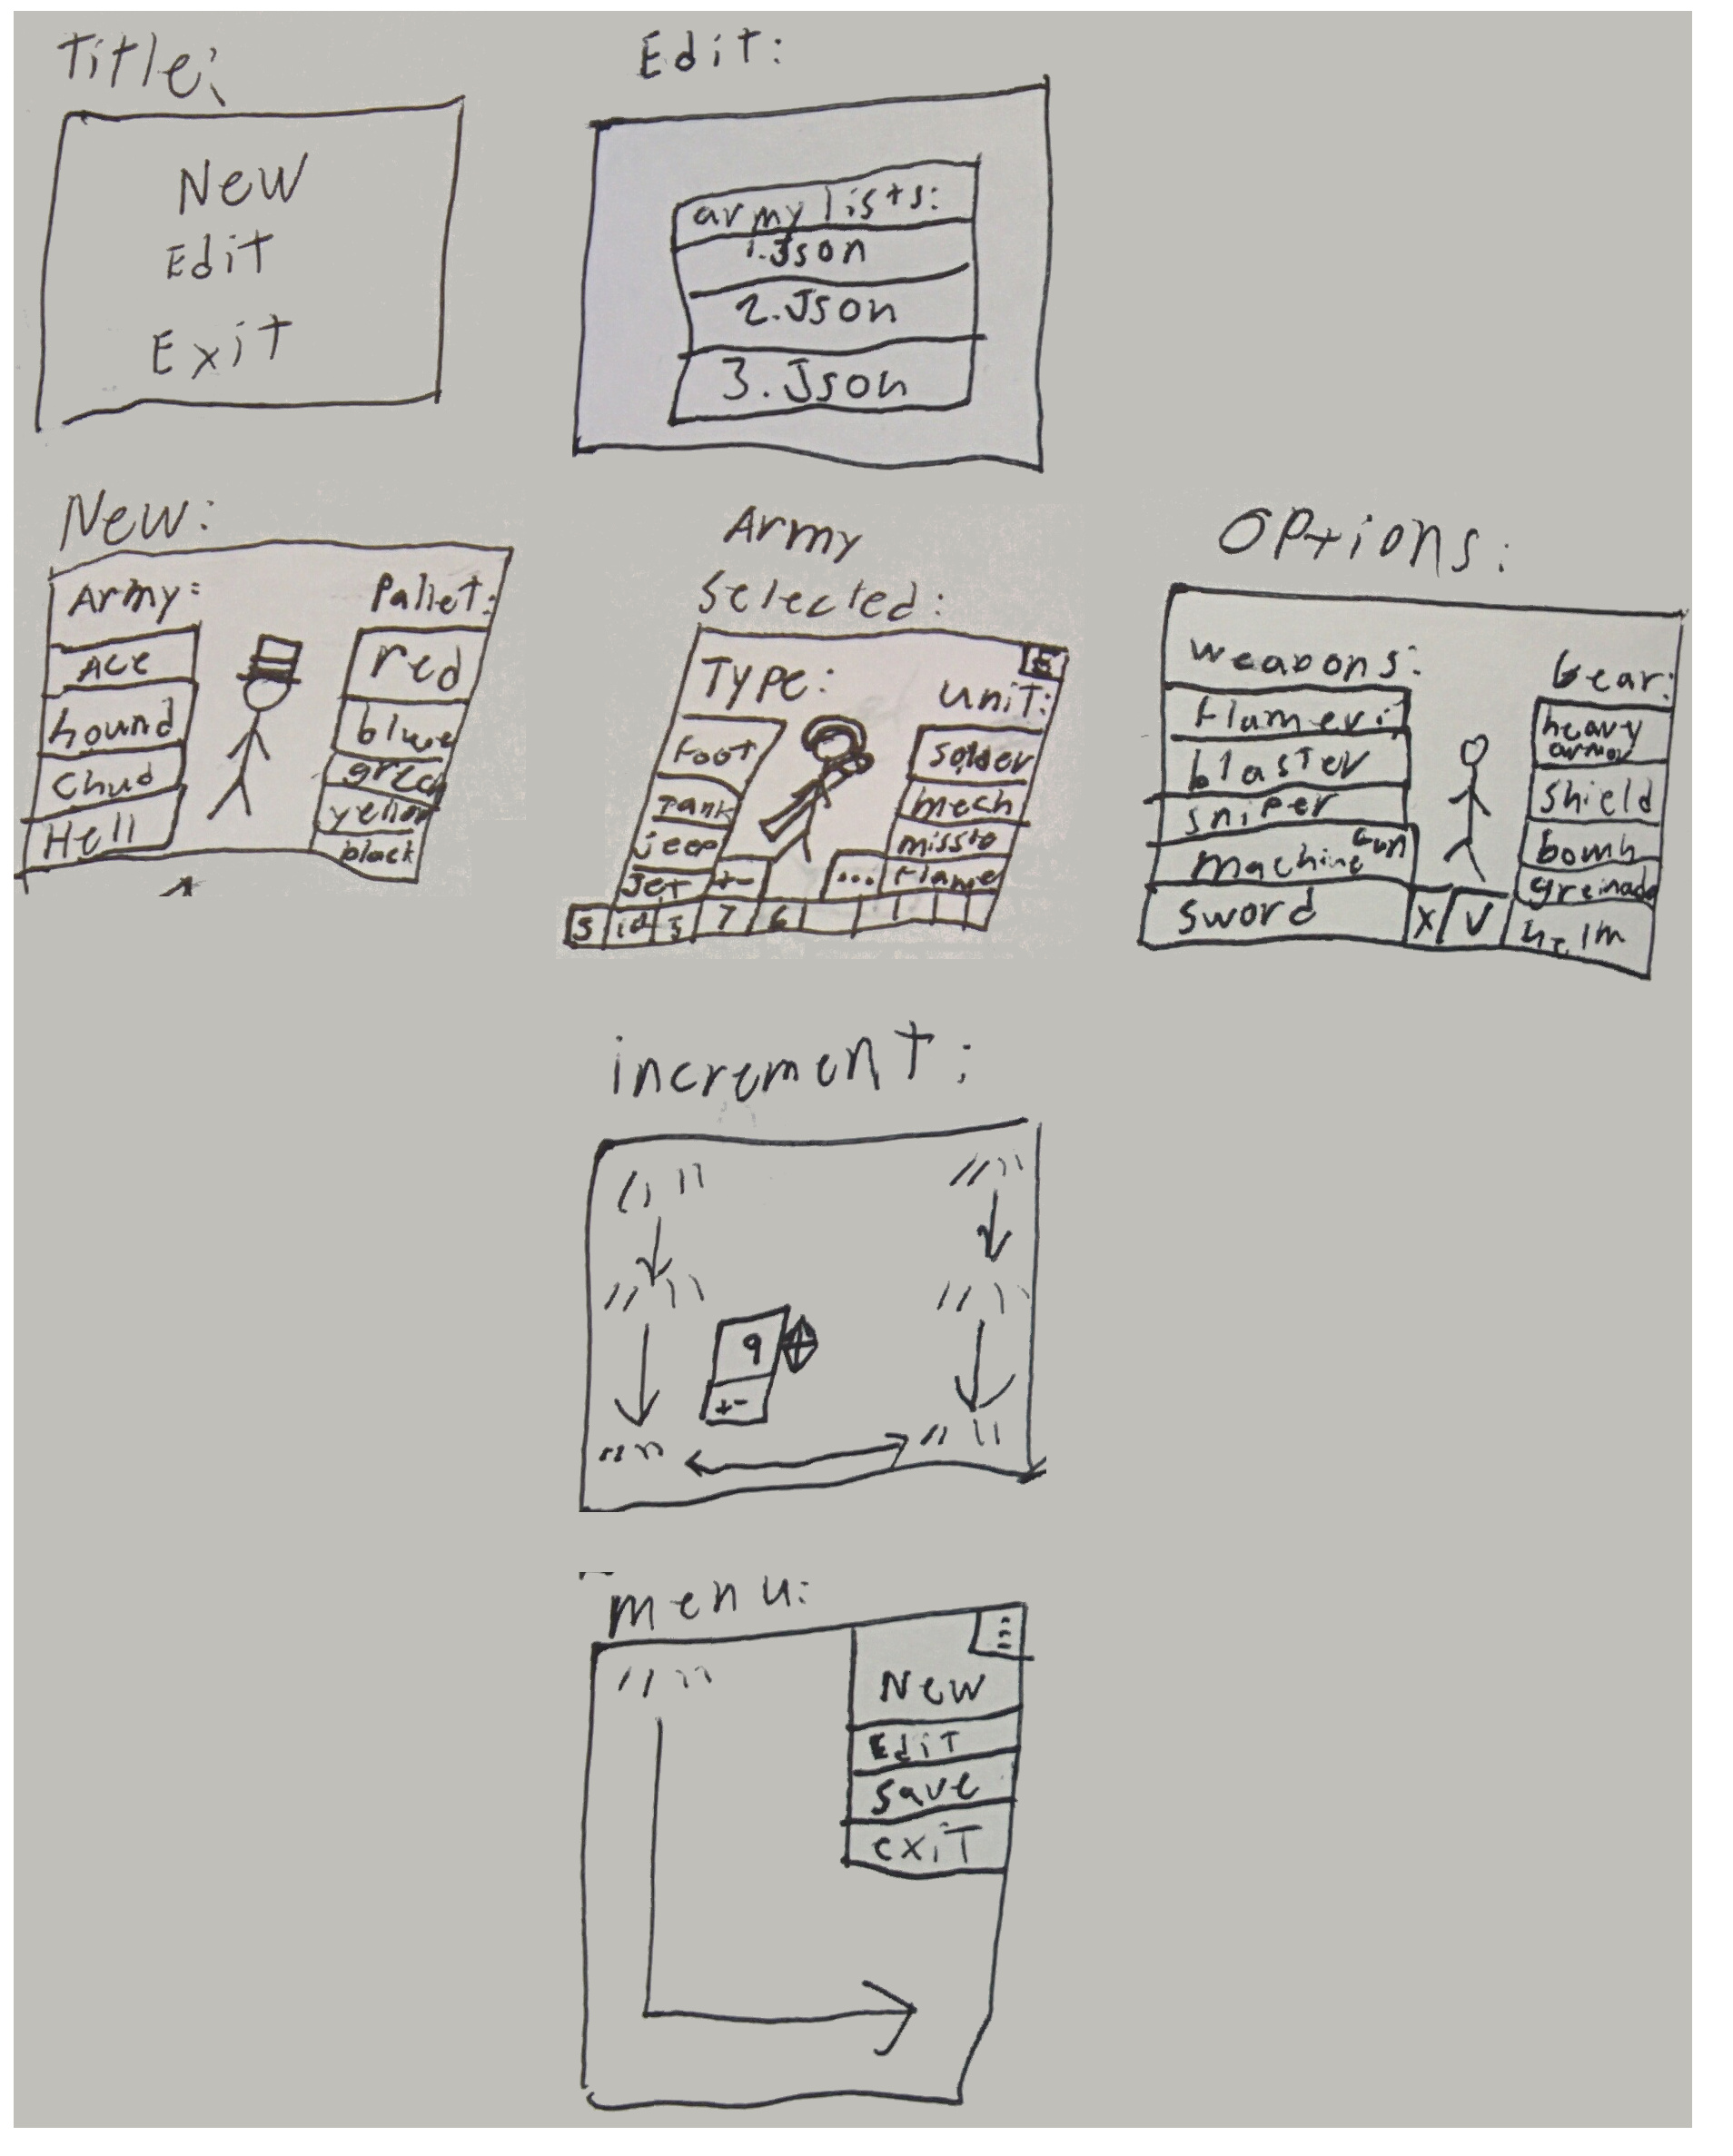 Title:
New
Edit
Exit
Edit:
army lists:
1.Json
2.Json
3.Json
New:
Army:
Ace
hound
Chud
Hell
Pallet:
red
blue
green
yellow
black
Army
Selected:
Type:
Foot
Tank
jeep
Jet
+-
...
unit:
solder
mech
Flame
5 id 5 7 6
Options:
weapons:
Flamer
blaster
sniper
machine gun
sword
X V
Gear:
heavy
armor
shield
bomb
greinade
helm
increment:
9
+-
menu:
New
Edit
save
exit